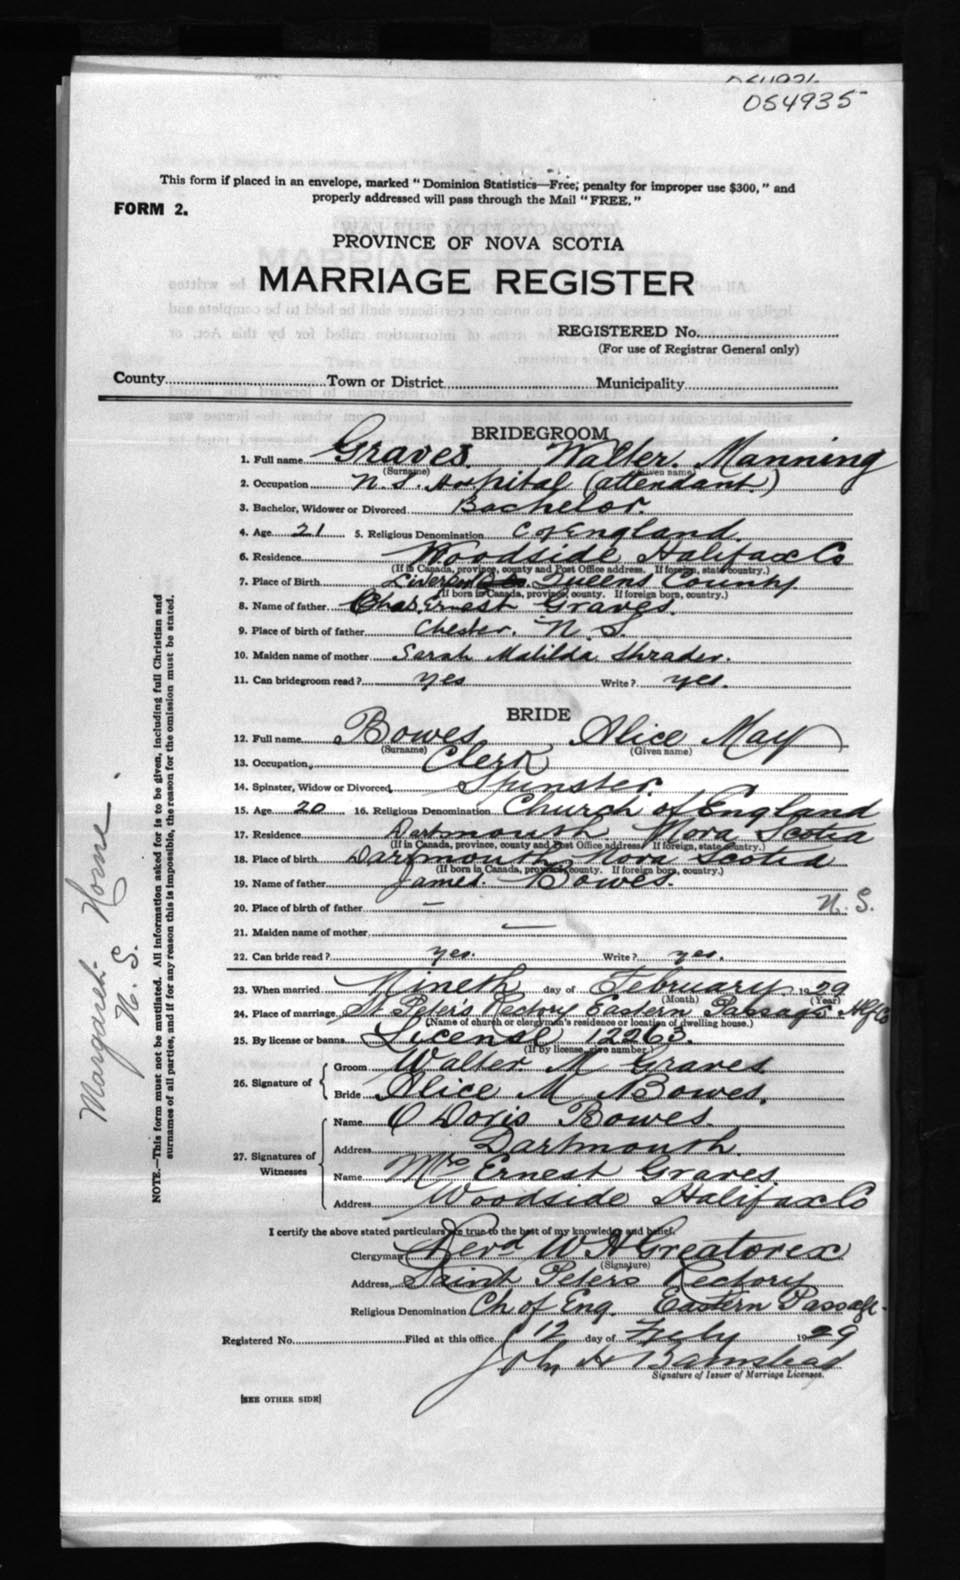 054935
This form if placed in an envelope, marked "Dominion Statistics—Free, penalty for improper use $300," and
properly addressed will pass through the Mail "FREE."
FORM 2.
PROVINCE OF NOVA SCOTIA
MARRIAGE REGISTER
REGISTERED No.
(For use of Registrar General only)
County Town or District Municipality
BRIDEGROOM
1. Full name Graves. Walter. Manning
(Surname) (Given name)
2. Occupation N. S. Hospital (attendant.)
3. Bachelor, Widower or Divorced Bachelor.
4. Age 21 5. Religious Denomination C of England.
6. Residence Woodside Halifax Co
(If in Canada, province, county and Post Office address. If foreign, state country.)
7. Place of Birth Liverpool Queens County
(If born in Canada, province, county. If foreign born, country.)
8. Name of father Chas. Ernest Graves.
9. Place of birth of father Chester. N. S.
10. Maiden name of mother Sarah Matilda Shrader.
11. Can bridegroom read? yes Write? yes.
BRIDE
12. Full name Bowes Alice May
(Surname) (Given name)
13. Occupation Clerk
14. Spinster, Widow or Divorced Spinster.
15. Age 20 16. Religious Denomination Church of England
17. Residence Dartmouth Nova Scotia
(If in Canada, province, county and Post Office address If foreign, state country.)
18. Place of birth Dartmouth Nova Scotia
(If born in Canada, province, county. If foreign born, country.)
19. Name of father James. Bowes.
20. Place of birth of father — N. S.
21. Maiden name of mother —
22. Can bride read? yes. Write? yes.
23. When married Nineth day of February. 1929
(Month) (Year)
24. Place of marriage St Peter's Rectory Eastern Passage Hfx Co
(Name of church or clergyman's residence or location of dwelling house.)
25. By license or banns License 12263.
(If by license, give number)
26. Signature of
Groom Walter M Graves
Bride Alice M Bowes.
27. Signatures of Witnesses
Name O Doris Bowes.
Address Dartmouth.
Name Mrs Ernest Graves.
Address Woodside Halifax Co
I certify the above stated particulars are true to the best of my knowledge and belief.
Clergyman Revd W H Greatorex
(Signature)
Address Saint Peters Rectory
Religious Denomination Ch of Eng. Eastern Passage
Registered No. Filed at this office 12 day of Feby 1929
John H
Signature of Issuer of Marriage Licenses.
[SEE OTHER SIDE]
NOTE.—This form must not be mutilated. All information asked for is to be given, including full Christian and
surnames of all parties, and if for any reason this is impossible, the reason for the omission must be stated.
Margaret Horne
N. S.